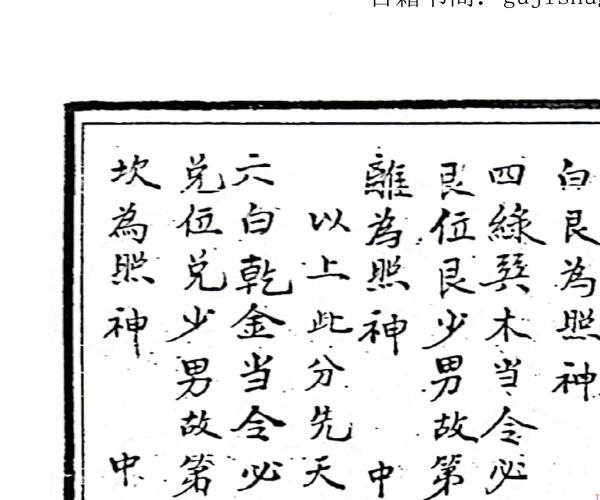 古籍书阁：gujishug
白艮為照神
四綠巽木当令必
艮位艮少男故第
離為照神 中
以上此分先天
六白乾金当令必
兌位兌少男故第
坎為照神 中